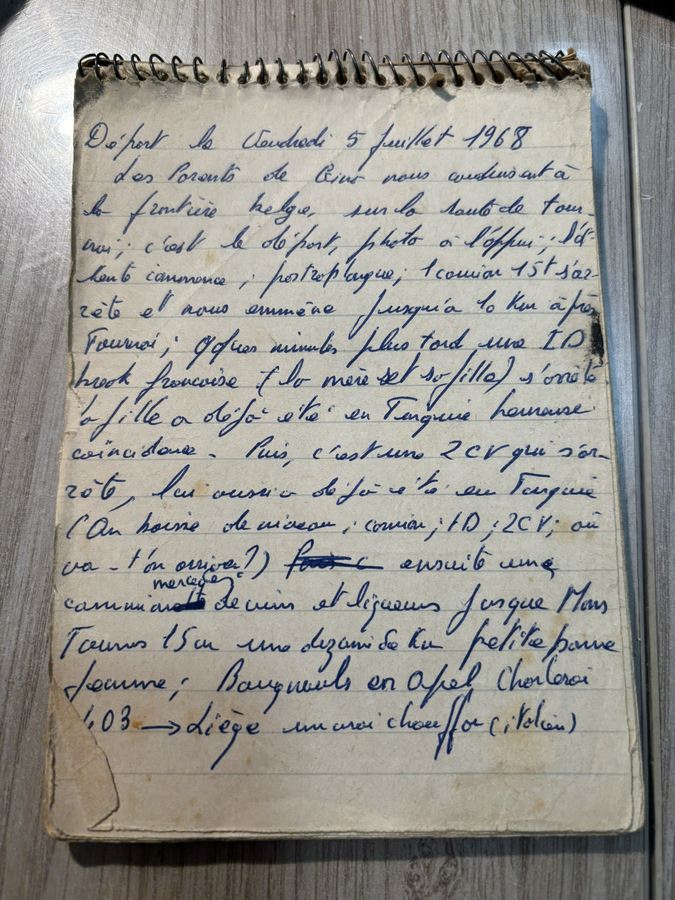 Départ le Vendredi 5 Juillet 1968
Les Parents de nous conduisent à
la frontière belge, sur la route de Tour-
nai; c'est le départ, photo à l'appui; l'at-
tente commence; 1 camion 15t s'ar-
rête et nous emmène jusqu'à 10 Km après
Tournai; qques minutes plus tard une ID
break francaise (la mère et sa fille) s'arrête
la fille a déjà été en Turquie heureuse
coïncidence. Puis, c'est une 2CV qui s'ar-
rête, lui aussi a déjà été en Turquie
(On baisse de niveau; camion; ID; 2CV; où
va-t'on arriver?) ensuite une
camionette de vins et liqueurs jusque Mons
Taunus 15m une dizaine de Km petite panne
Jeanne; en Opel Charleroi
403 → Liège un vrai chauffar (italien)